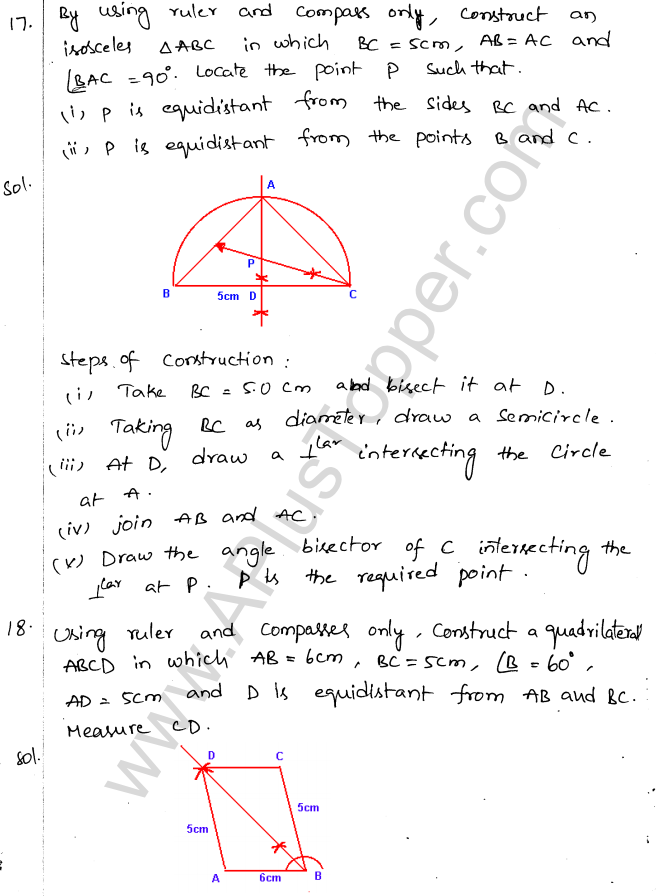 17. By using ruler and compass only, construct an
isosceles △ABC in which BC = 5cm, AB = AC and
∠BAC = 90°. Locate the point P such that.
(i) P is equidistant from the sides BC and AC.
(ii) P is equidistant from the points B and C.
Sol.
A
P
B 5cm D C
Steps of Construction :
(i) Take BC = 5.0 cm and bisect it at D.
(ii) Taking BC as diameter, draw a semicircle.
(iii) At D, draw a ⊥lar intersecting the circle
at A.
(iv) join AB and AC.
(v) Draw the angle bisector of C intersecting the
⊥lar at P. P is the required point.
18. Using ruler and compasses only, construct a quadrilateral
ABCD in which AB = 6cm, BC = 5cm, ∠B = 60°,
AD = 5cm and D is equidistant from AB and BC.
Measure CD.
Sol.
D C
5cm
5cm
A 6cm B
www.APlusTopper.com